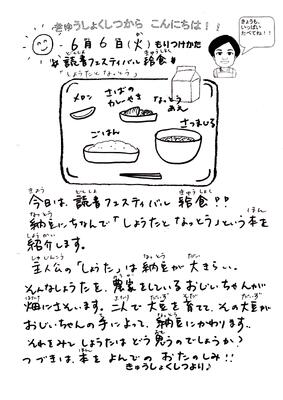 きゅうしょくしつから こんにちは!!
きょうも、
いっぱい
たべてね!!
6月6日(火)もりつけかた
☆読書フェスティバル給食☆
「しょうたとなっとう」
メロン
さばの
カレーやき
なっとう
あえ
ごはん
さつまじる
今日は、読書フェスティバル給食!!
納豆にちなんで「しょうたとなっとう」という本を
紹介します。
主人公の「しょうた」は納豆が大きらい。
そんなしょうたを、農家をしているおじいちゃんが
畑にさそいます。二人で大豆を育てて、その大豆が
おじいちゃんの手によって、納豆にかわります。
それをみてしょうたはどう思うのでしょうか?
つづきは、本をよんでの おたのしみ!!
きゅうしょくしつより♪